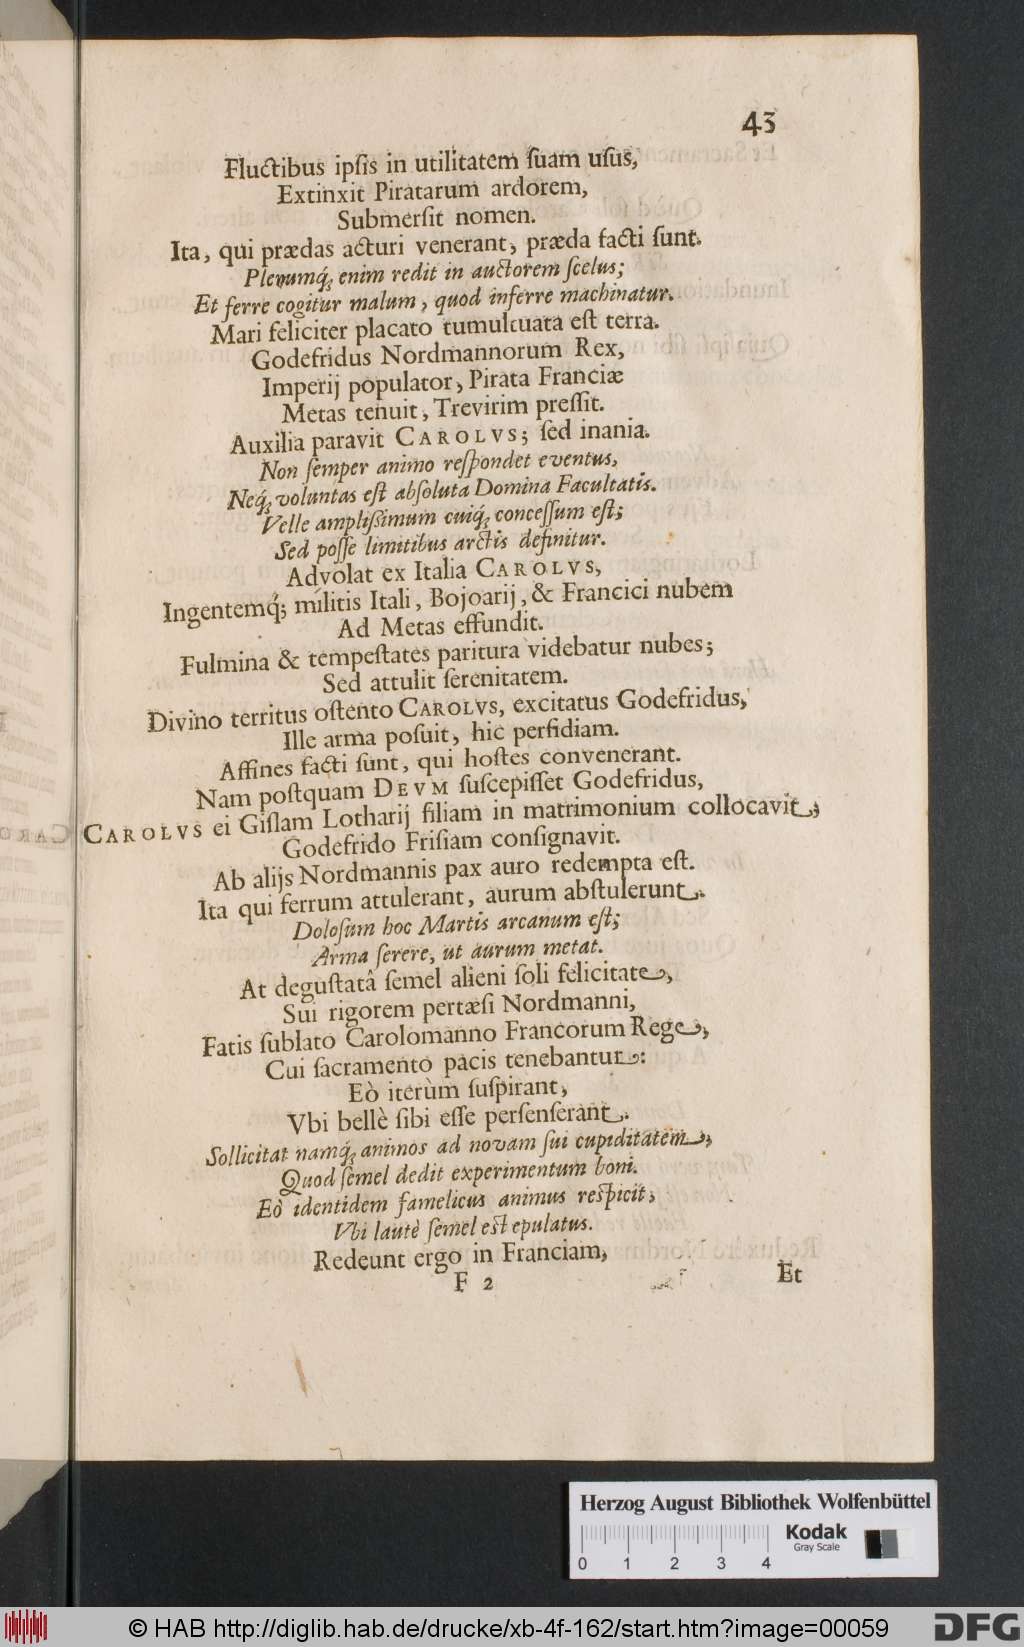 43
Fluctibus ipſis in utilitatem ſuam uſus,
Extinxit Piratarum ardorem,
Submerſit nomen.
Ita, qui prædas acturi venerant, præda facti ſunt.
Plerumq́; enim redit in auctorem ſcelus;
Et ferre cogitur malum, quod inferre machinatur.
Mari feliciter placato tumultuata eſt terra.
Godefridus Nordmannorum Rex,
Imperij populator, Pirata Franciæ
Metas tenuit, Trevirim preſſit.
Auxilia paravit CAROLVS; ſed inania.
Non ſemper animo reſpondet eventus,
Neq́; voluntas eſt abſoluta Domina Facultatis.
Velle ampliſſimum cuiq́; conceſſum eſt;
Sed poſſe limitibus arctis definitur.
Advolat ex Italia CAROLVS,
Ingentemq́; militis Itali, Bojoarij, & Francici nubem
Ad Metas effundit.
Fulmina & tempeſtates paritura videbatur nubes;
Sed attulit ſerenitatem.
Divino territus oſtento CAROLVS, excitatus Godefridus,
Ille arma poſuit, hic perfidiam.
Affines facti ſunt, qui hoſtes convenerant.
Nam poſtquam DEVM ſuſcepiſſet Godefridus,
CAROLVS ei Giſlam Lotharij filiam in matrimonium collocavit;
Godefrido Friſiam conſignavit.
Ab alijs Nordmannis pax auro redempta eſt.
Ita qui ferrum attulerant, aurum abſtulerunt.
Doloſum hoc Martis arcanum eſt;
Arma ſerere, ut aurum metat.
At deguſtatâ ſemel alieni ſoli felicitate,
Sui rigorem pertæſi Nordmanni,
Fatis ſublato Carolomanno Francorum Rege,
Cui ſacramento pacis tenebantur:
Eò iterùm ſuſpirant,
Vbi bellè ſibi eſſe perſenſerant.
Sollicitat namq́; animos ad novam ſui cupiditatem,
Quod ſemel dedit experimentum boni.
Eò identidem famelicus animus reſpicit,
Vbi lautè ſemel eſt epulatus.
Redeunt ergo in Franciam,
F 2
Et
Herzog August Bibliothek Wolfenbüttel
Kodak
Gray Scale
0 1 2 3 4
© HAB http://diglib.hab.de/drucke/xb-4f-162/start.htm?image=00059
DFG